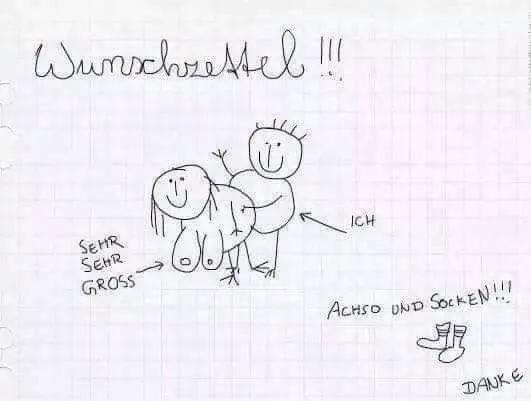 Wunschzettel!!!
ICH
SEHR
SEHR
GROSS
ACHSO UND SOCKEN!!!
DANKE